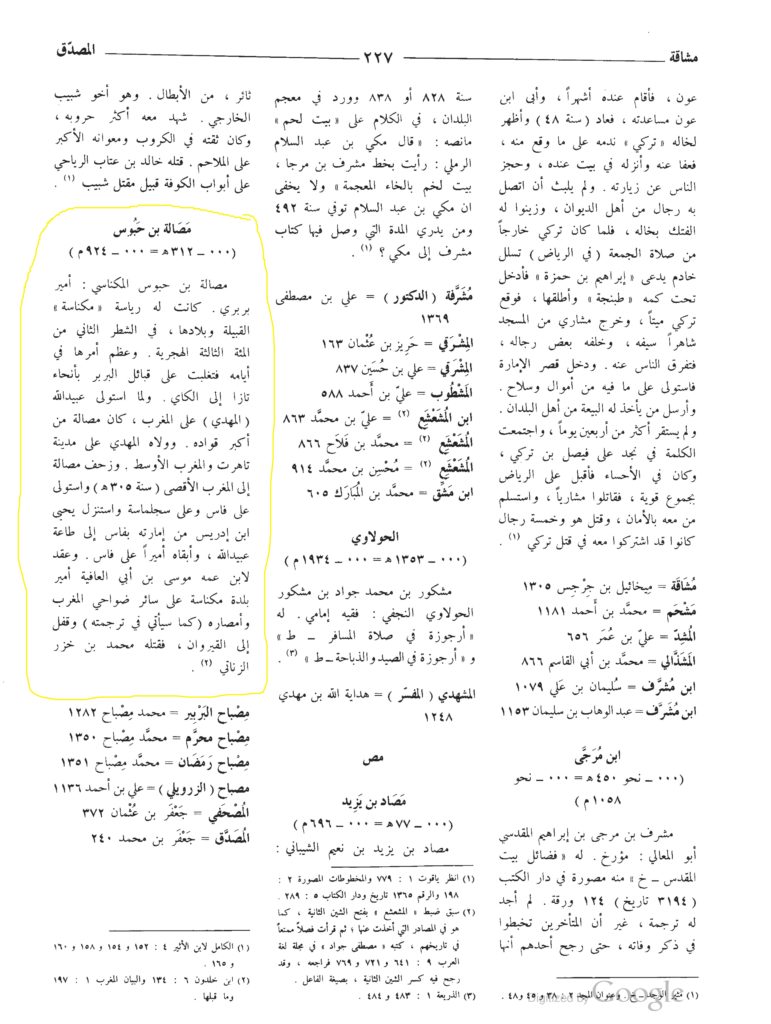 مشاقة
٢٢٧
المصدّق
عون ، فأقام عنده أشهراً ، وأبى ابن
عون مساعدته ، فعاد (سنة ٤٨) وأظهر
لخاله «تركي» ندمه على ما وقع منه ،
فعفا عنه وأنزله في بيت عنده ، وحجز
الناس عن زيارته . ولم يلبث أن اتصل
به رجال من أهل الديوان ، وزينوا له
الفتك بخاله ، فلما كان تركي خارجاً
من صلاة الجمعة (في الرياض) تسلل
خادم يدعى «إبراهيم بن حمزة» فأدخل
تحت كمه «طبنجة» وأطلقها ، فوقع
تركي ميتاً ، وخرج مشاري من المسجد
شاهراً سيفه ، وخلفه بعض رجاله ،
فتفرق الناس عنه . ودخل قصر الإمارة
فاستولى على ما فيه من أموال وسلاح .
وأرسل من يأخذ له البيعة من أهل البلدان .
ولم يستقر أكثر من أربعين يوماً ، واجتمعت
الكلمة في نجد على فيصل بن تركي ،
وكان في الأحساء فأقبل على الرياض
بجموع قوية ، فقاتلوا مشارياً ، واستسلم
من معه بالأمان ، وقتل هو وخمسة رجال
كانوا قد اشتركوا معه في قتل تركي (١) .
مُشَاقَة = مِيخائيل بن جِرْجِس ١٣٠٥
مَشْحَم = محمد بن أحمد ١١٨١
المُشِدّ = عليّ بن عُمَر ٦٥٦
المَشَذَّالي = محمد بن أبي القاسم ٨٦٦
ابن مُشَرَّف = سُليمان بن عَلي ١٠٧٩
ابن مُشَرَّف = عبد الوهاب بن سليمان ١١٥٣
ابن مُرَجَّى
(٠٠٠ ـ نحو ٤٥٠ ه = ٠٠٠ ـ نحو
١٠٥٨ م)
مشرف بن مرجى بن إبراهيم المقدسي
أبو المعالي : مؤرخ . له «فضائل بيت
المقدس ـ خ» منه مصورة في دار الكتب
(٣١٩٤ تاريخ) ١٢٤ ورقة . لم أجد
له ترجمة ، غير أن المتأخرين تخبطوا
في ذكر وفاته ، حتى رجح أحدهم أنها
(١) مثير الوجد ـ خ . وعنوان المجد ٢ : ٣٨ و ٤٥ و ٤٨ .
سنة ٨٢٨ أو ٨٣٨ وورد في معجم
البلدان ، في الكلام على «بيت لحم»
مانصه : «قال مكي بن عبد السلام
الرملي : رأيت بخط مشرف بن مرجا ،
بيت لخم بالخاء المعجمة» ولا يخفى
ان مكي بن عبد السلام توفي سنة ٤٩٢
ومن يدري المدة التي وصل فيها كتاب
مشرف إلى مكي ؟ (١) .
مُشَرَّفة (الدكتور) = علي بن مصطفى
١٣٦٩
المِشْرَقي = حَريز بن عُثمان ١٦٣
المِشْرَقي = علي بن حُسَين ٨٣٧
المَشْطُوب = عليّ بن أَحمد ٥٨٨
ابن المُشَعْشَع (٢) = عليّ بن محمَّد ٨٦٣
المُشَعْشَع (٢) = محمَّد بن فَلَاح ٨٦٦
المُشَعْشَع (٢) = مُحْسِن بن محمَّد ٩١٤
ابن مَشِّق = محمَّد بن المُبَارَك ٦٠٥
الحولاوي
(٠٠٠ ـ ١٣٥٣ ه = ٠٠٠ ـ ١٩٣٤ م)
مشكور بن محمد جواد بن مشكور
الحولاوي النجفي : فقيه إمامي . له
«أرجوزة في صلاة المسافر ـ ط»
و «أرجوزة في الصيد والذباحة ـ ط» (٣) .
المشهدي (المفسّر) = هداية الله بن مهدي
١٢٤٨
مص
مَصَاد بن يَزِيد
(٠٠٠ ـ ٧٧ ه = ٠٠٠ ـ ٦٩٦ م)
مصاد بن يزيد بن نعيم الشيباني :
(١) انظر ياقوت ١ : ٧٧٩ والمخطوطات المصورة ٢ :
١٩٨ والرقم ١٣٦٥ تاريخ ودار الكتاب ٥ : ٢٨٩ .
(٢) سبق ضبط «المشعشع» بفتح الشين الثانية ، كما
هو في المصادر التي أخذت عنها ؛ ثم قرأت فصلاً ممتعاً
في تاريخهم ، كتبه «مصطفى جواد» في مجلة لغة
العرب ٩ : ٦٤١ و ٧٢١ و ٧٦٩ فراجعه ، وقد
رجح فيه كسر الشين الثانية ، بصيغة الفاعل .
(٣) الذريعة ١ : ٤٨٣ و ٤٨٤ .
ثائر ، من الأبطال . وهو أخو شبيب
الخارجي . شهد معه أكثر حروبه ،
وكان ثقته في الكروب ومعوانه الأكبر
على الملاحم . قتله خالد بن عتاب الرياحي
على أبواب الكوفة قبيل مقتل شبيب (١) .
مَصَالة بن حَبُوس
(٠٠٠ ـ ٣١٢ ه = ٠٠٠ ـ ٩٢٤ م)
مصالة بن حبوس المكناسي : أمير
بربري . كانت له رياسة «مكناسة»
القبيلة وبلادها ، في الشطر الثاني من
المئة الثالثة الهجرية . وعظم أمرها في
أيامه فتغلبت على قبائل البربر بأنحاء
تازا إلى الكاي . ولما استولى عبيدالله
(المهدي) على المغرب ، كان مصالة من
أكبر قواده . وولاه المهدي على مدينة
تاهرت والمغرب الأوسط . وزحف مصالة
إلى المغرب الأقصى (سنة ٣٠٥ ه) واستولى
على فاس وعلى سجلماسة واستنزل يحيى
ابن إدريس من إمارته بفاس إلى طاعة
عبيدالله ، وأبقاه أميراً على فاس . وعقد
لابن عمه موسى بن أبي العافية أمير
بلدة مكناسة على سائر ضواحي المغرب
وأمصاره (كما سيأتي في ترجمته) وقفل
إلى القيروان ، فقتله محمد بن خزر
الزناتي (٢) .
مِصْباح البَرْبِير = محمد مِصْباح ١٢٨٢
مِصْباح محرَّم = محمَّد مِصْباح ١٣٥٠
مِصْباح رَمَضَان = محمَّد مِصْباح ١٣٥١
مصباح (الزرويلي) = علي بن أحمد ١١٣٦
المُصْحَفي = جَعْفَر بن عُثْمان ٣٧٢
المُصَدَّق = جَعْفَر بن محمد ٢٤٠
(١) الكامل لابن الأثير ٤ : ١٥٢ و ١٥٤ و ١٥٨ و ١٦٠
و ١٦٥ .
(٢) ابن خلدون ٦ : ١٣٤ والبيان المغرب ١ : ١٩٧
وما قبلها .
Digitized by Google